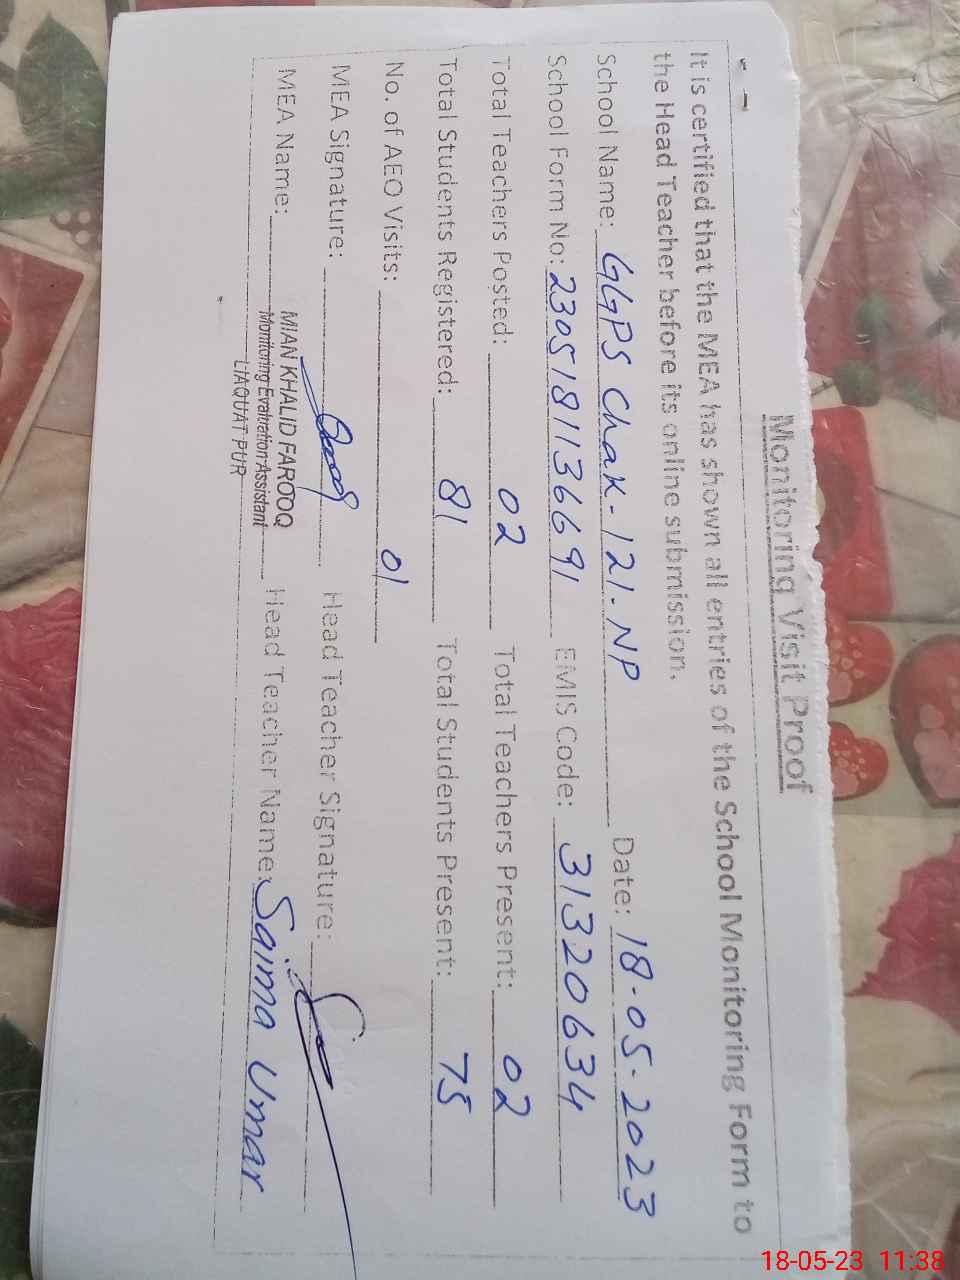 Monitoring Visit Proof
It is certified that the MEA has shown all entries of the School Monitoring Form to
the Head Teacher before its online submission.
School Name: GGPS Chak-121-NP Date: 18-05-2023
School Form No: 2305181136691 EMIS Code: 31320634
Total Teachers Posted: 02 Total Teachers Present: 02
Total Students Registered: 81 Total Students Present: 75
No. of AEO Visits: 01
MEA Signature: Head Teacher Signature:
MEA Name: MIAN KHALID FAROOQ Head Teacher Name: Saima Umar
Monitoring Evaltration Assistant
LIAQUAT PUR
18-05-23 11:38